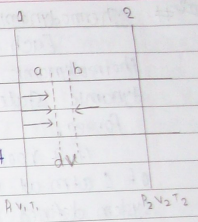 1 2
a b
dv
P₁ V₁ T₁ P₂ V₂ T₂